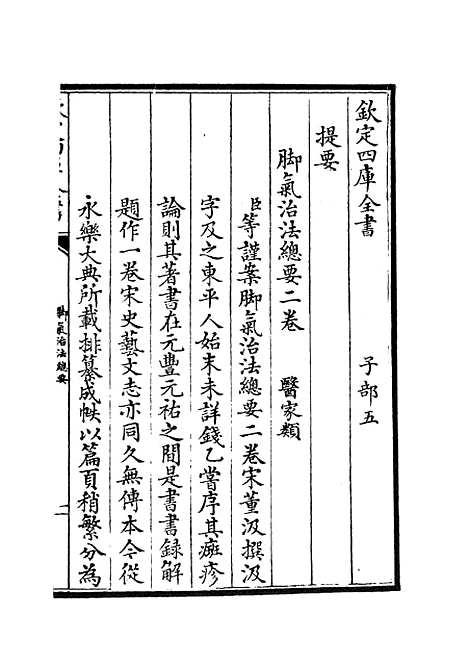 欽定四庫全書　子部五
提要
脚氣治法總要二卷　醫家類
臣等謹案脚氣治法總要二卷宋董汲撰汲
字及之東平人始末未詳錢乙嘗序其斑疹
論則其著書在元豐元祐之間是書書録解
題作一卷宋史藝文志亦同久無傳本今從
永樂大典所載排纂成帙以篇頁稍繁分為
脚氣治法總要